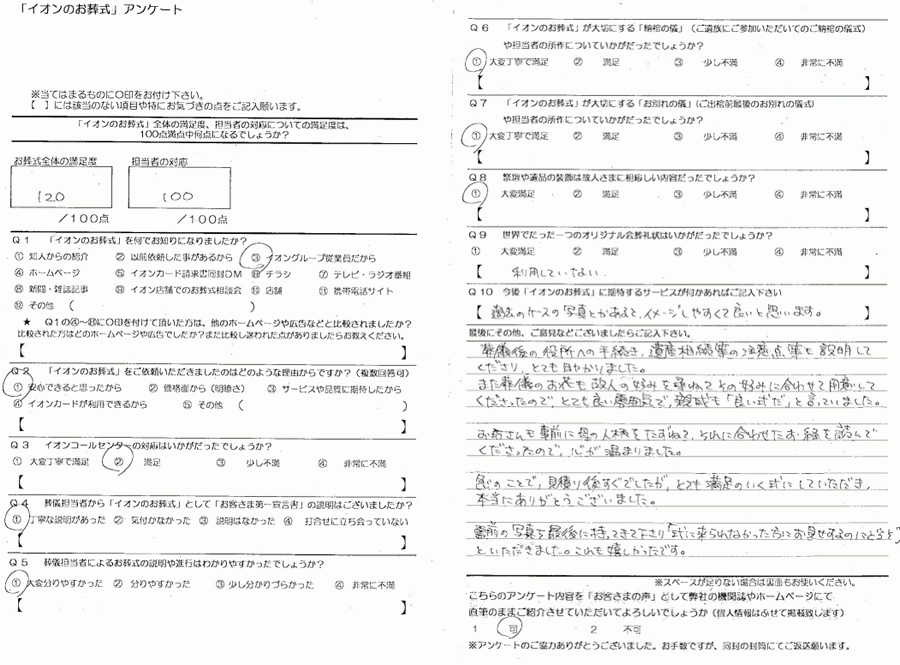 「イオンのお葬式」アンケート
※当てはまるものに〇印をお付け下さい。
【　】には該当のない項目や特にお気づきの点をご記入願います。
「イオンのお葬式」全体の満足度、担当者の対応についての満足度は、
100点満点中何点になるでしょうか？
お葬式全体の満足度　担当者の対応
120　100
／100点　／100点
Q1　「イオンのお葬式」を何でお知りになりましたか？
① 知人からの紹介　② 以前依頼した事があるから　③ イオングループ従業員だから
④ ホームページ　⑤ イオンカード請求書同封DM　⑥ チラシ　⑦ テレビ・ラジオ番組
⑧ 新聞・雑誌記事　⑨ イオン店舗でのお葬式相談会　⑩ 店舗　⑪ 携帯電話サイト
⑫ その他　（　）
★　Q1の④～⑪に〇印を付けて頂いた方は、他のホームページや広告などと比較されましたか？
比較された方はどのホームページや広告でしたか？また比較し迷われた点がありましたらお教えください。
【　】
Q2　「イオンのお葬式」をご依頼いただきましたのはどのような理由からですか？（複数回答可）
① 安心できると思ったから　② 価格面から（明瞭さ）　③ サービスや品質に期待したから
④ イオンカードが利用できるから　⑤ その他　（　）
【　】
Q3　イオンコールセンターの対応はいかがだったでしょうか？
① 大変丁寧で満足　② 満足　③ 少し不満　④ 非常に不満
【　】
Q4　葬儀担当者から「イオンのお葬式」として「お客さま第一宣言書」の説明はございましたか？
① 丁寧な説明があった　② 気付かなかった　③ 説明はなかった　④ 打合せに立ち会っていない
【　】
Q5　葬儀担当者によるお葬式の説明や進行はわかりやすかったでしょうか？
① 大変分りやすかった　② 分りやすかった　③ 少し分かりづらかった　④ 非常に不満
【　】
Q6　「イオンのお葬式」が大切にする「納棺の儀」（ご遺族にご参加いただいてのご納棺の儀式）
や担当者の所作についていかがだったでしょうか？
① 大変丁寧で満足　② 満足　③ 少し不満　④ 非常に不満
【　】
Q7　「イオンのお葬式」が大切にする「お別れの儀」（ご出棺前最後のお別れの儀式）
や担当者の所作についていかがだったでしょうか？
① 大変丁寧で満足　② 満足　③ 少し不満　④ 非常に不満
【　】
Q8　祭壇や遺品の装飾は故人さまに相応しい内容だったでしょうか？
① 大変満足　② 満足　③ 少し不満　④ 非常に不満
【　】
Q9　世界でたった一つのオリジナル会葬礼状はいかがだったでしょうか？
① 大変満足　② 満足　③ 少し不満　④ 非常に不満
【　利用していない　】
Q10　今後「イオンのお葬式」に期待するサービスが何かあればご記入下さい
【　過去のケースの写真とかあると、イメージしやすくて良いと思います。　】
最後にその他、ご意見などございましたらご記入下さい。
葬儀後の役所への手続き，遺産相続等の注意点等も説明して
くださり，とても分かりました。
また葬儀のお花も故人の好みを尋ねてその好みに合わせて用意して
くださったので，とても良い雰囲気で，親戚も「良い式だ」と言っていました。
お坊さんも事前に母の人柄をたずねて，それに合わせたお経を読んで
くださったので，心が温まりました。
急のことで，見積り後すぐでしたが，とても満足のいく式にしていただき，
本当にありがとうございました。
生前の写真を最後に持ってきて下さり「式に来られなかった方にお見せするのにどうぞ」
といただきました。これも嬉しかったです。
※スペースが足りない場合は裏面もお使いください。
こちらのアンケート内容を「お客さまの声」として弊社の機関誌やホームページにて
直筆のままご紹介させていただいてよろしいでしょうか（個人情報はふせて掲載致します）
1　可　2　不可
※アンケートのご協力ありがとうございました。お手数ですが、同封の封筒にてご返送願います。